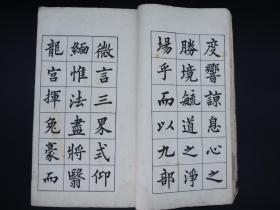 度響諒息心之
勝境毓道之淨
場乎而以九部
微言三界式仰
緬惟法盡將翳
龍宮揮兔豪而